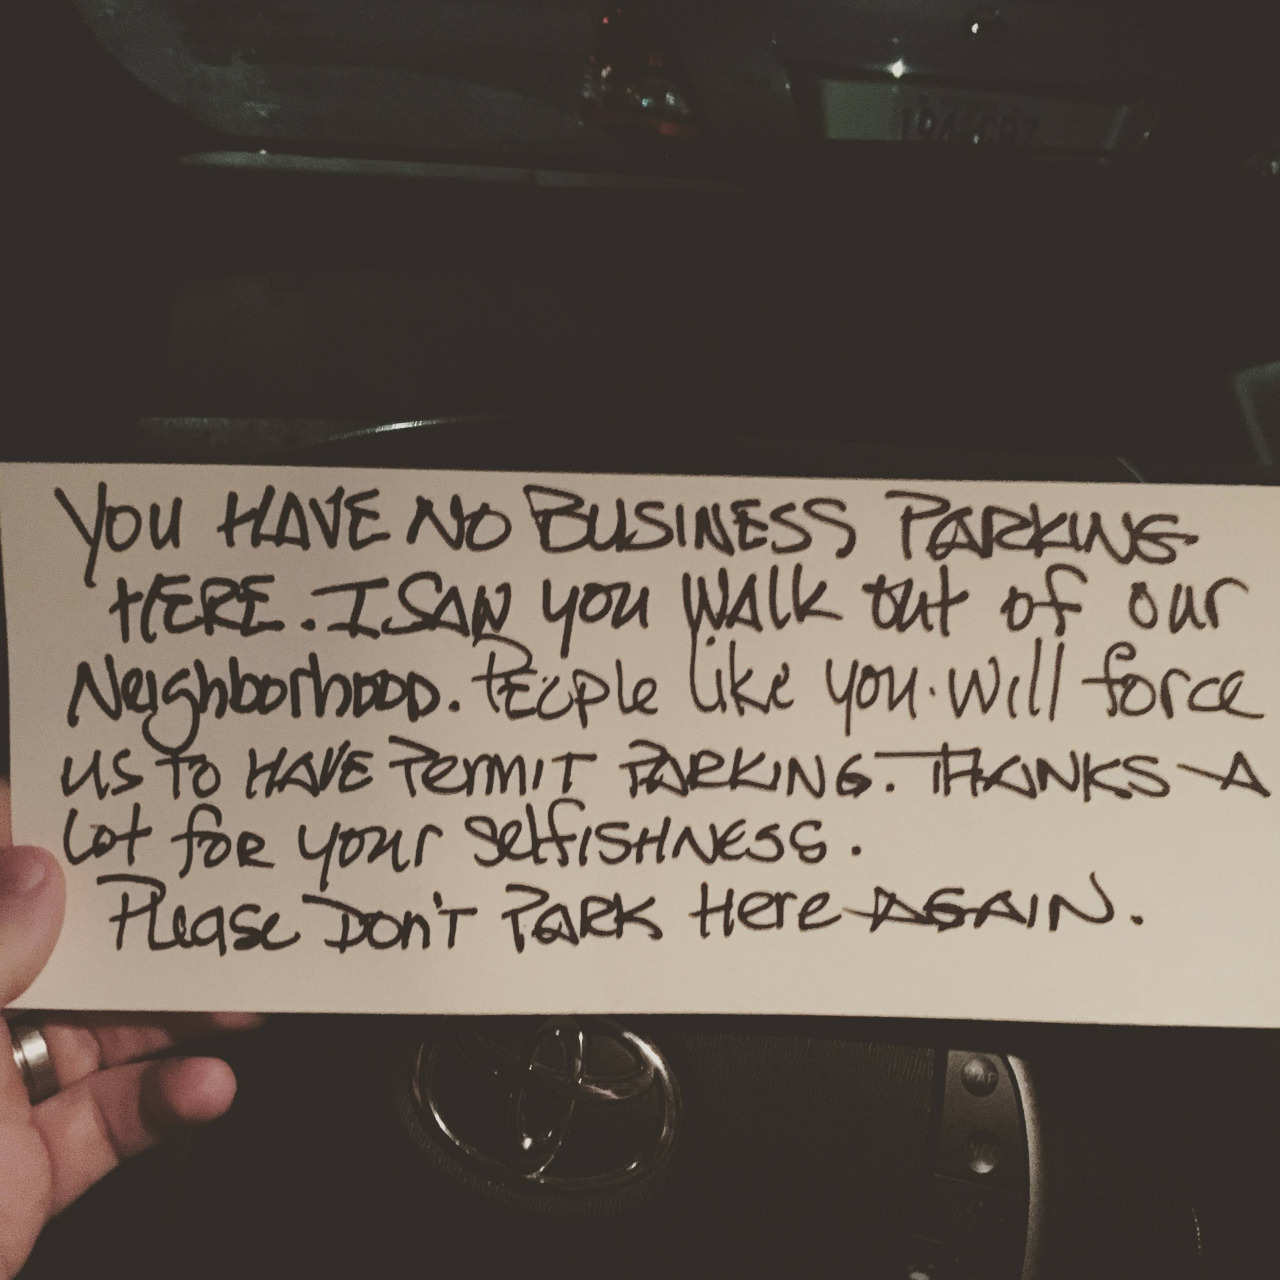 YOU HAVE NO BUSINESS PARKING
HERE. I SAW you WALK out of our
Neighborhood. PEOple like you will force
us To HAVE PermIT PARKING. THANKS A
Lot foR your SelfISHNESS.
Please Don't PARK Here AGAIN.